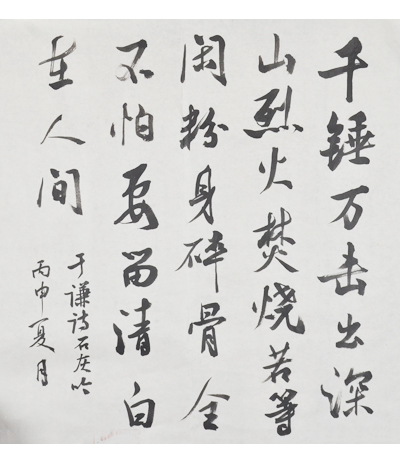 千锤万击出深
山烈火焚烧若等
闲粉身碎骨全
不怕要留清白
在人间
于谦诗石灰吟
丙申夏月